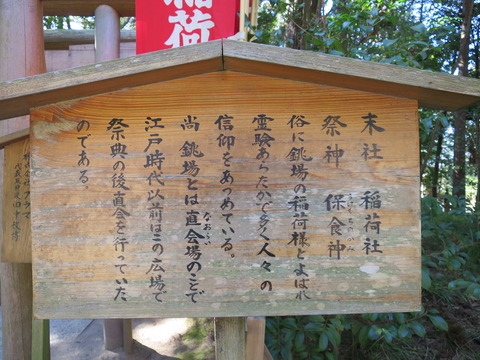 稲荷
末社 稲荷社
祭神 保食神
うけもちのかみ
俗に銚場の稲荷様とよばれ
霊験あらたかで多く人々の
信仰をあつめている。
尚 銚場とは直会場のことで
なおらい
江戸時代以前はこの広場で
祭典の後直会を行っていた
のである。